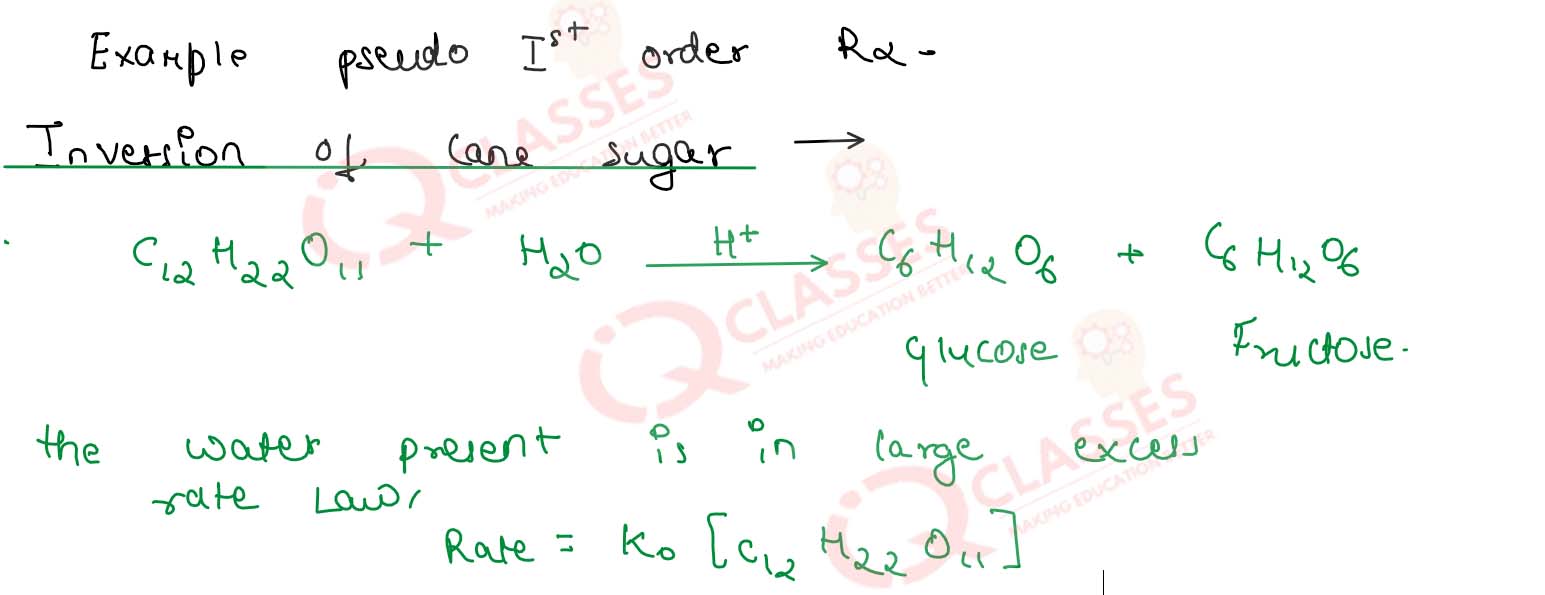 Example pseudo Ist order Rα -
Inversion of cane sugar →
C12 H22 O11 + H2O H+ → C6 H12 O6 + C6 H12 O6
glucose Fructose.
the water present is in large excess
rate Law,
Rate = Ko [C12 H22 O11]
IQ CLASSES
MAKING EDUCATION BETTER
IQ CLASSES
MAKING EDUCATION BETTER
IQ CLASSES
MAKING EDUCATION BETTER